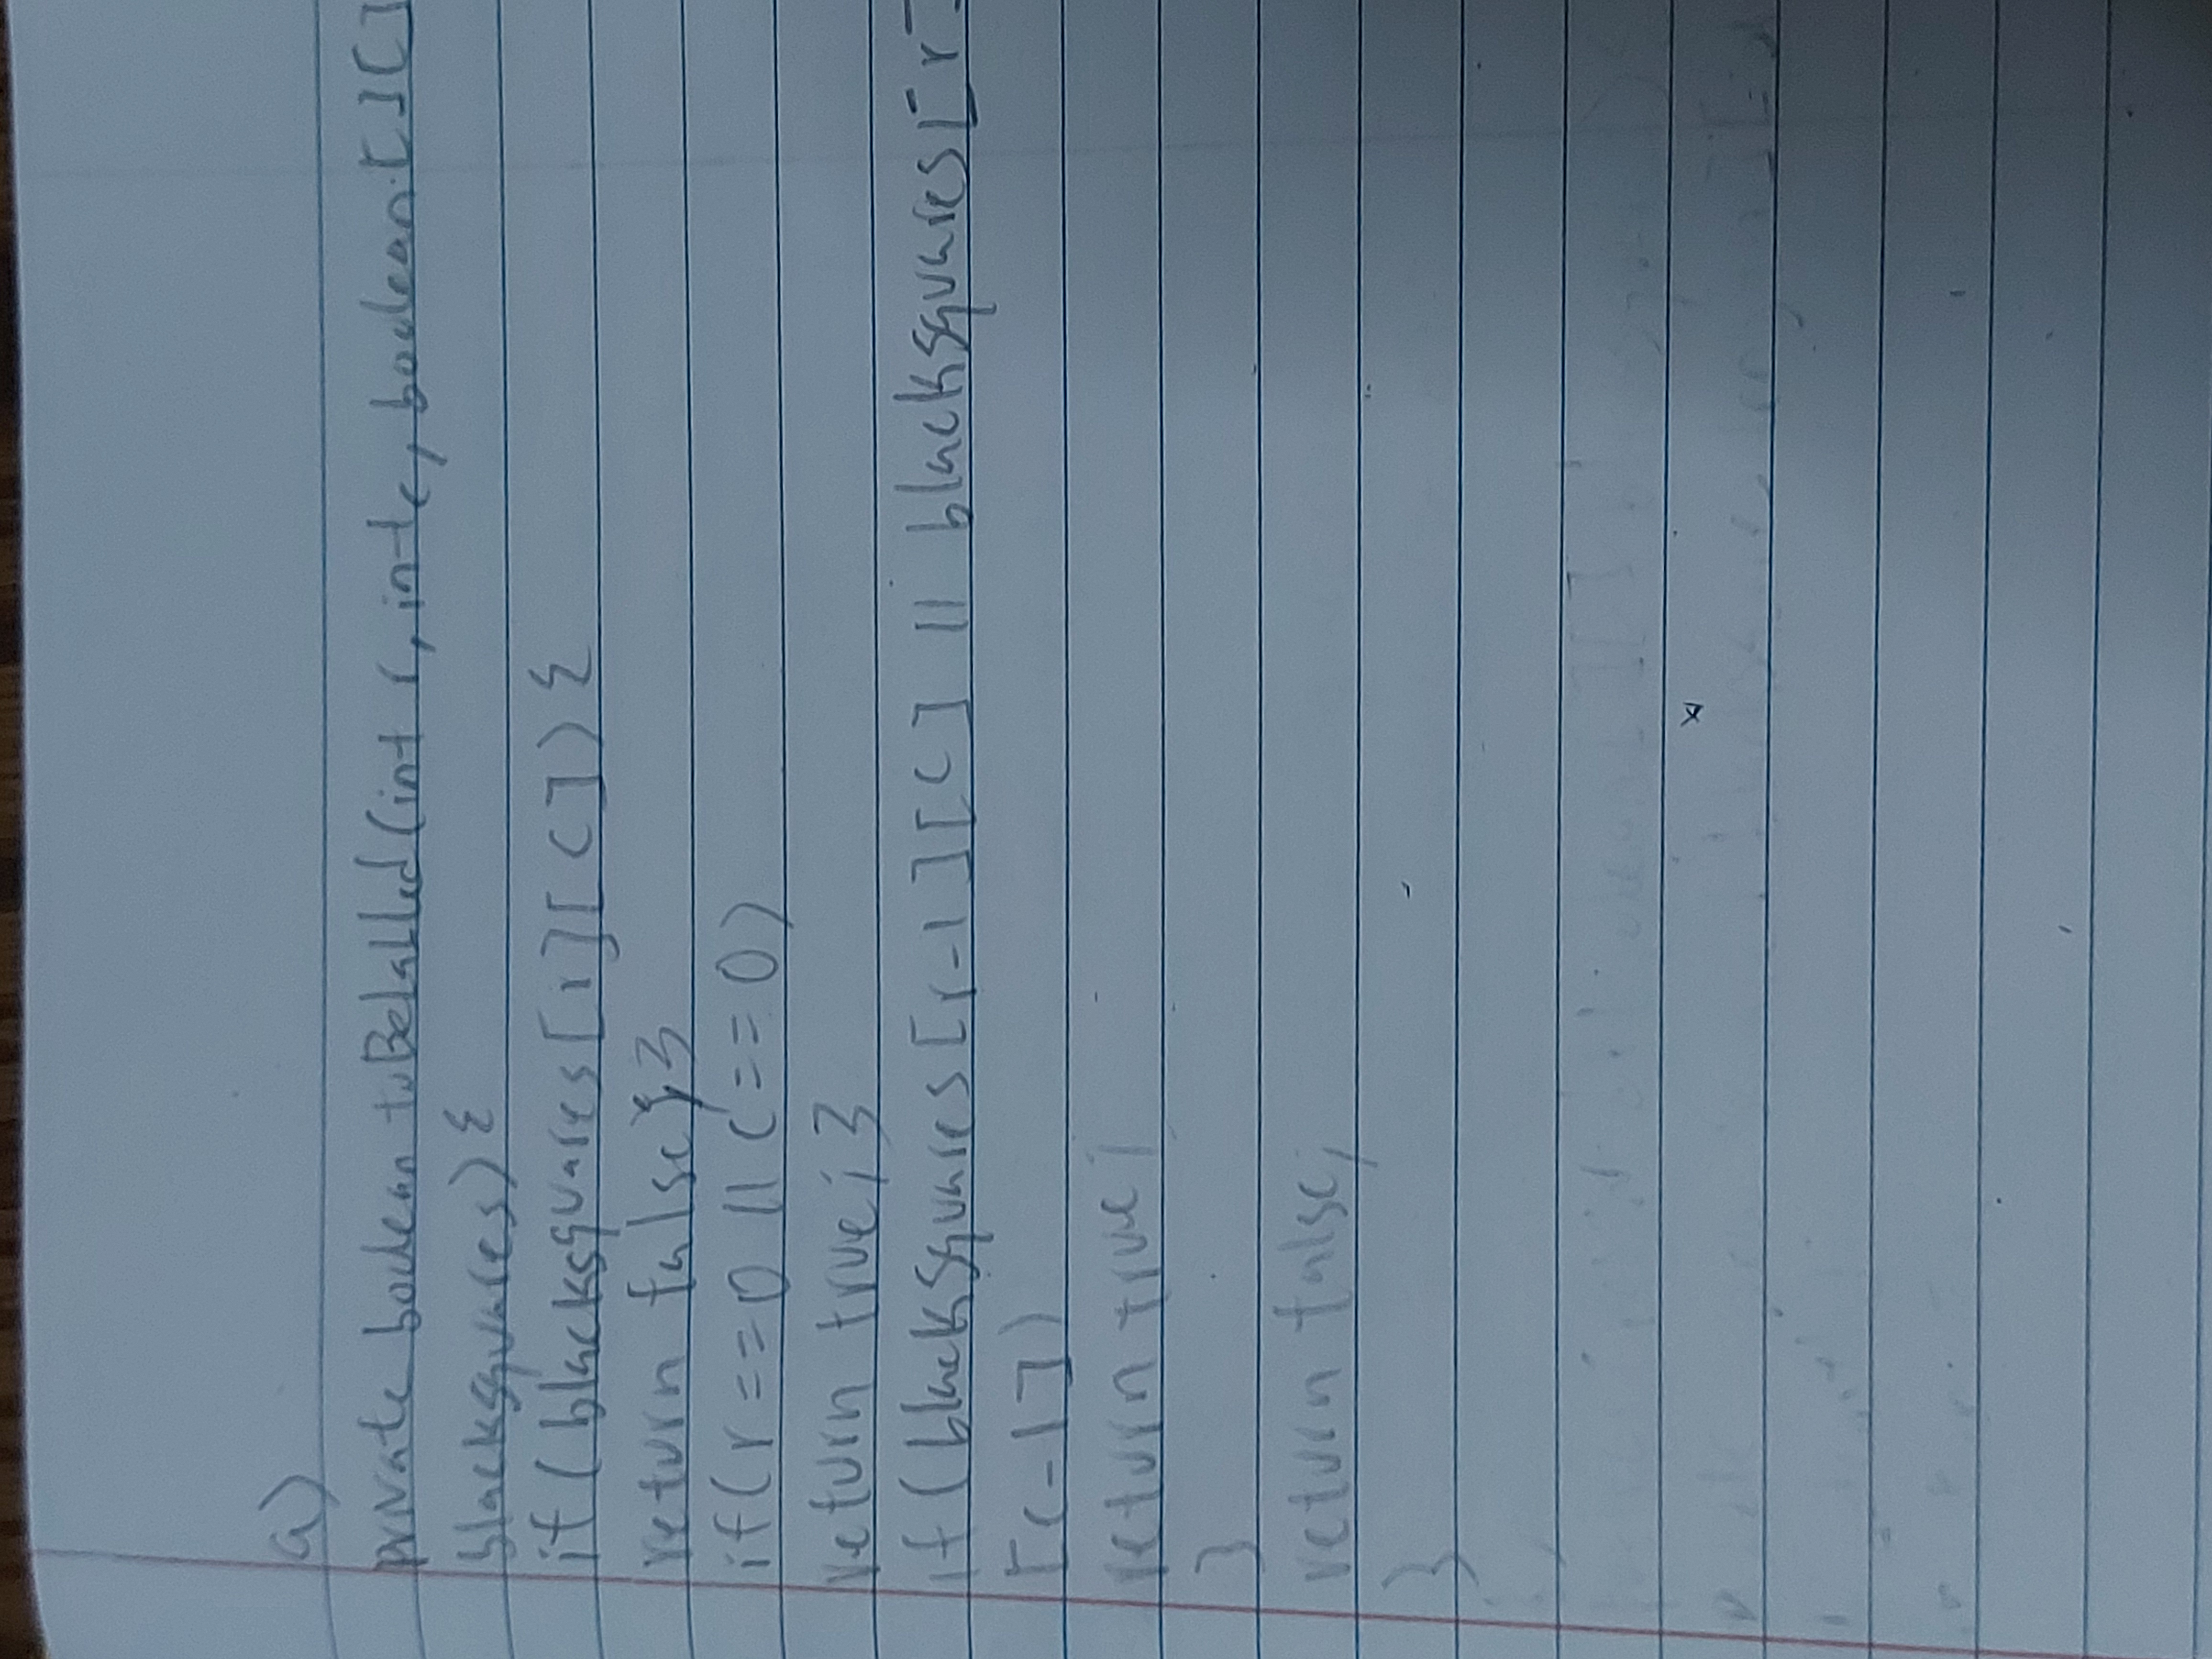 a)
private boolean toBelabled (int r, int c, boolean [ ] [ ]
blacksquares) {
if ( blacksquares [r] [ c ] ) {
return false ; }
if ( r == 0 || c == 0 )
return true ; }
if ( blackSquares [r-1] [c] || blacksquares [r]
[c-1] )
return true ;
}
return false ;
}